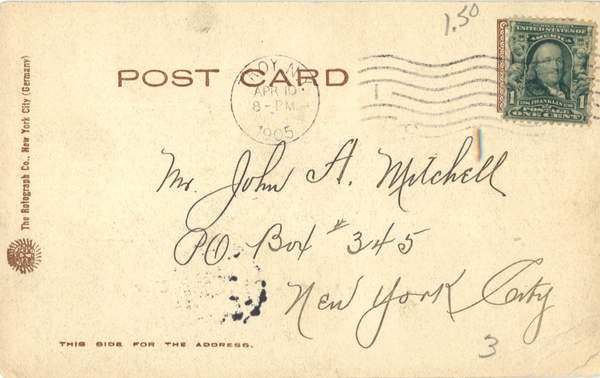 1.50
UNITED STATES OF AMERICA
1 FRANKLIN 1
POSTAGE
ONE CENT
POST CARD
TROY, N.Y.
APR 10
8-PM
1905
1
Mr. John A. Mitchell
P.O. Box # 345
New York City
3
The Rotograph Co., New York City (Germany)
THIS SIDE FOR THE ADDRESS.